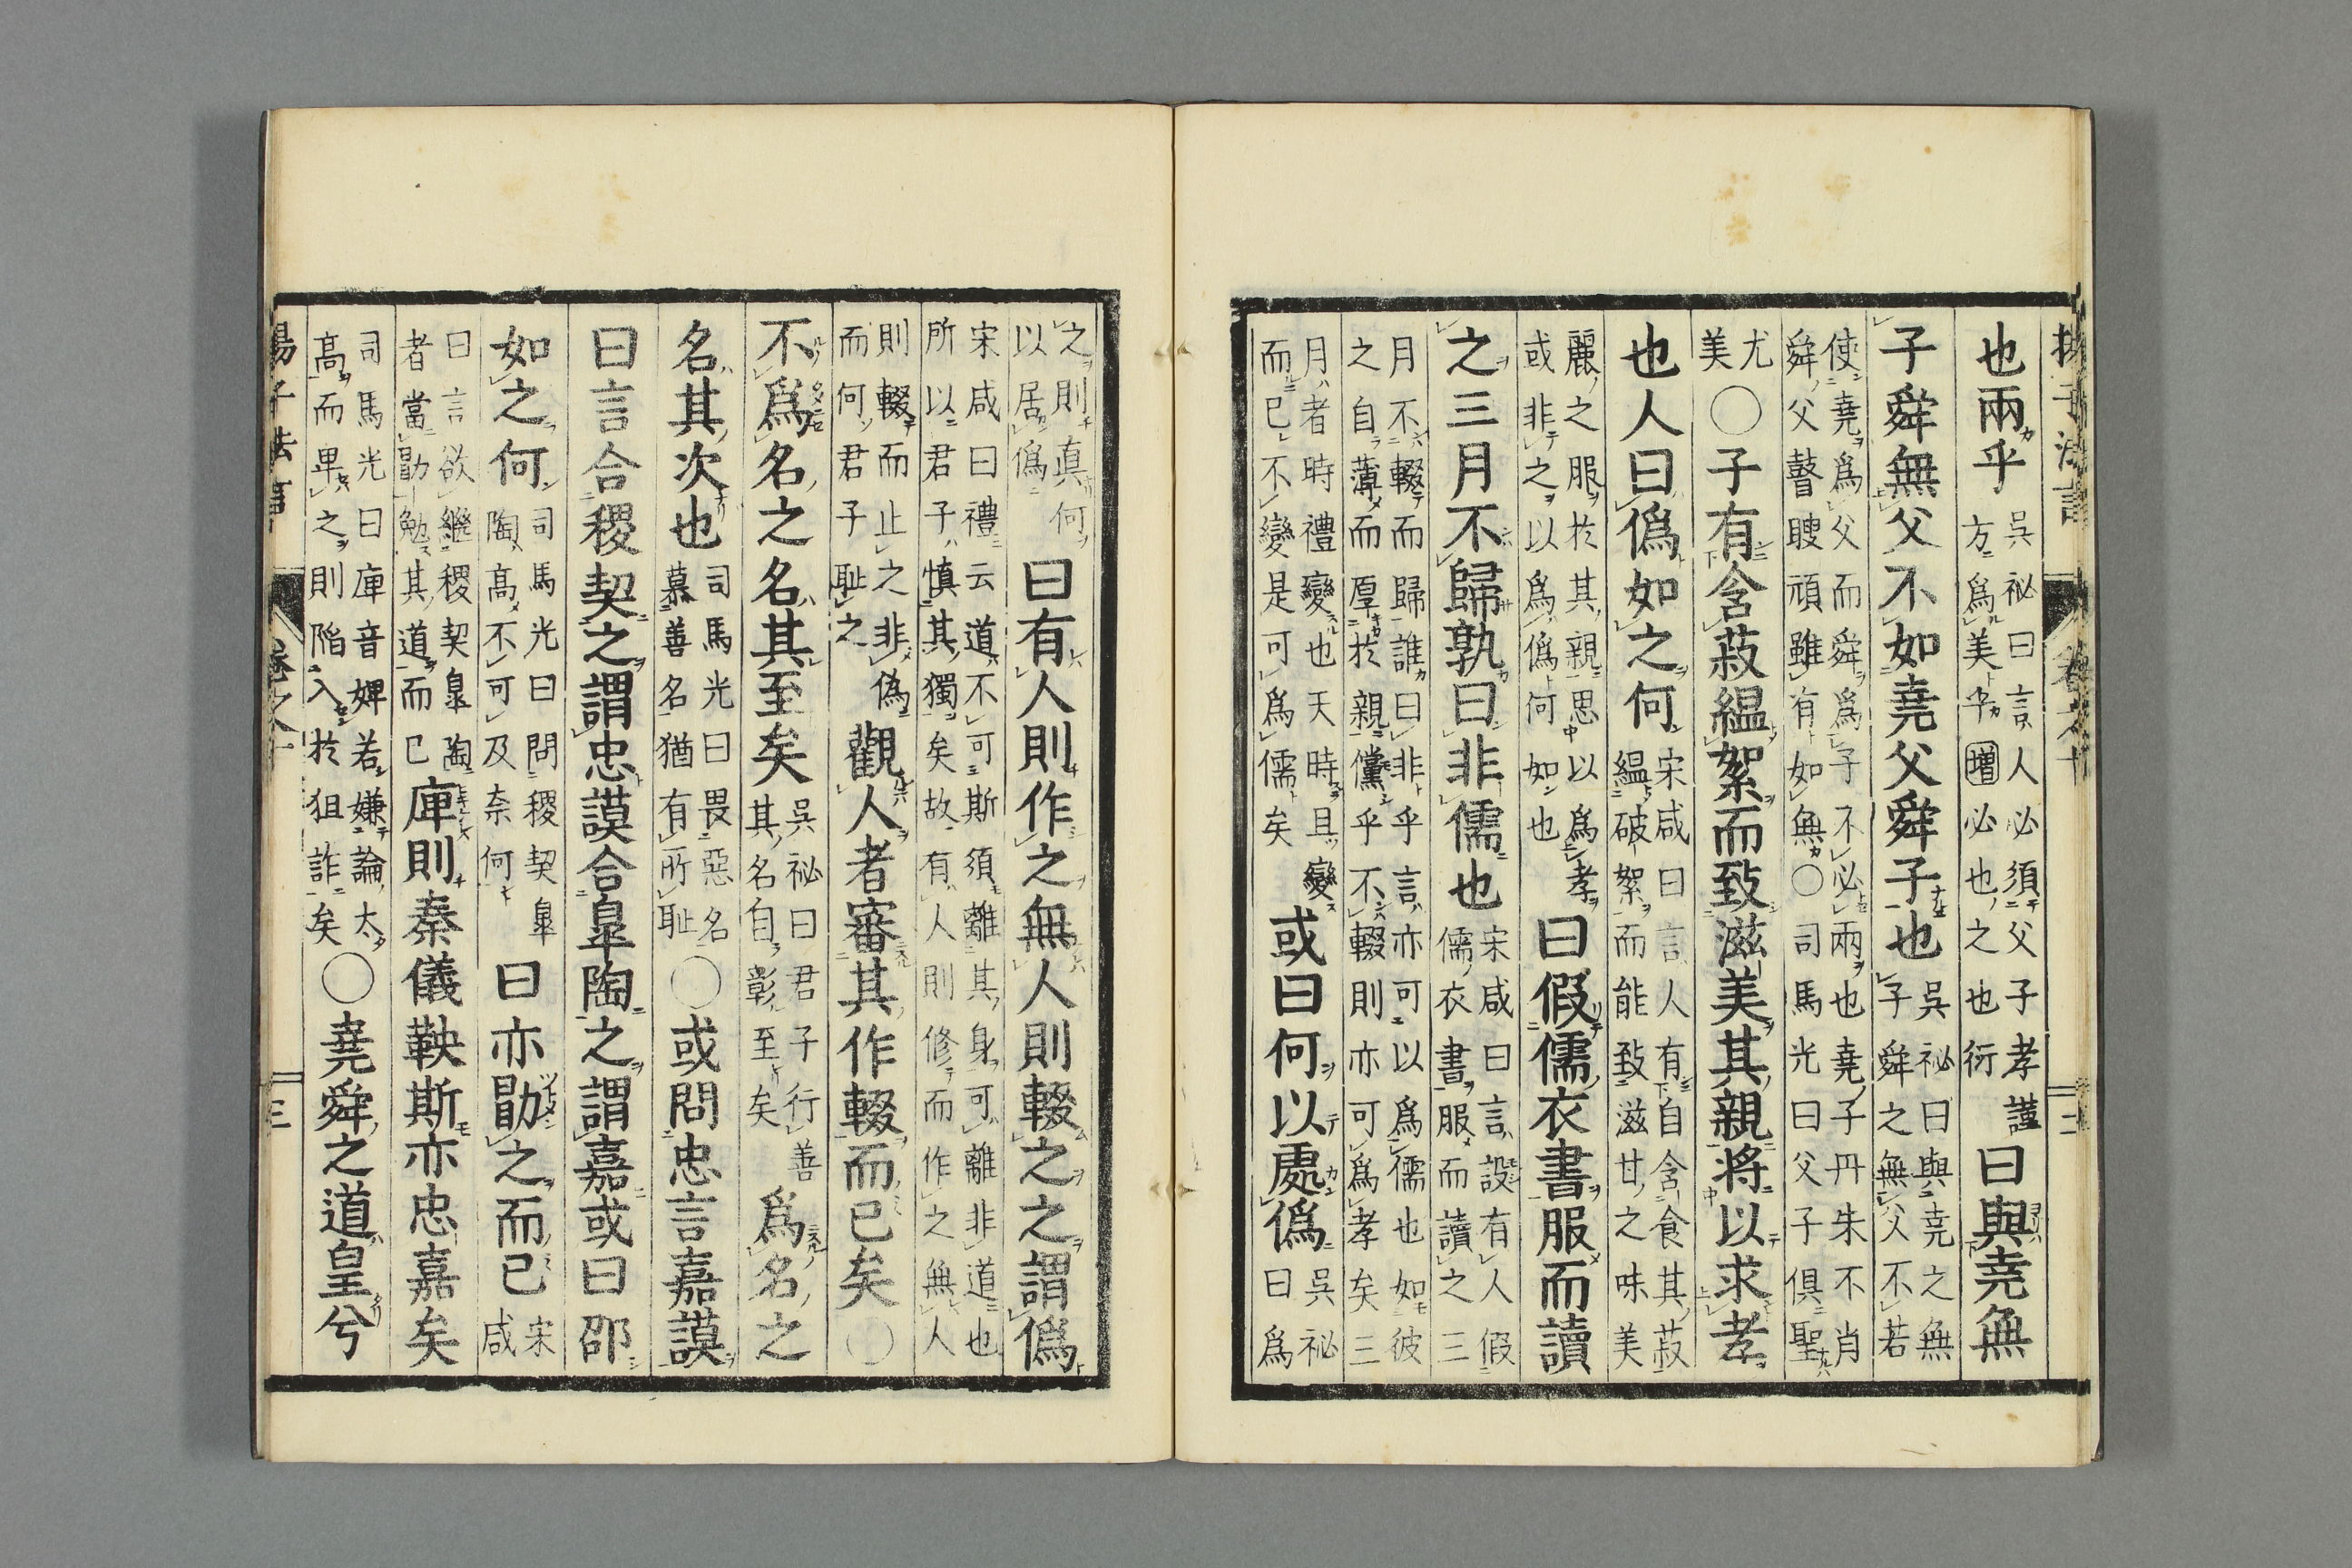 揚子法言 卷之十 二
也兩乎吳祕曰言人必須父子孝謹方爲美乎增必也之也衍曰與堯無
子舜無父不如堯父舜子也吳祕曰與堯之無子舜之無父不若
使堯爲父而舜爲子不必兩也堯子丹朱不肖舜父瞽瞍頑雖有如無○司馬光曰父子俱聖
尤美○子有含菽縕絮而致滋美其親將以求孝
也人曰僞如之何宋咸曰言人有自含食其菽縕破絮而能致滋甘之味美
麗之服於其親思以爲孝或非之以爲僞何如也曰假儒衣書服而讀
之三月不歸孰曰非儒也宋咸曰言設有人假儒衣書服而讀之三
月不輟而歸誰曰非乎言亦可以爲儒也如彼之自薄而厚於親儻乎不輟則亦可爲孝矣三
月者時禮變也天時且變而已不變是可爲儒矣或曰何以處僞吳祕曰爲
之則眞何以居僞曰有人則作之無人則輟之之謂僞
宋咸曰禮云道不可斯須離其身可離非道也所以君子慎其獨矣故有人則修而作之無人
則輟而止之非僞而何君子恥之觀人者審其作輟而已矣○
不爲名之名其至矣吳祕曰君子行善其名自彰至矣爲名之
名其次也司馬光曰畏惡名慕善名猶有所恥○或問忠言嘉謨
曰言合稷契之謂忠謨合皐陶之謂嘉或曰邵
如之何司馬光曰問稷契皐陶高不可及奈何曰亦勖之而已宋咸
曰言欲繼稷契皐陶者當勖勉其道而已庳則秦儀鞅斯亦忠嘉矣
司馬光曰庳音婢若嫌論太高而卑之則陷入於狙詐矣○堯舜之道皇兮
揚子法言 卷之十 三